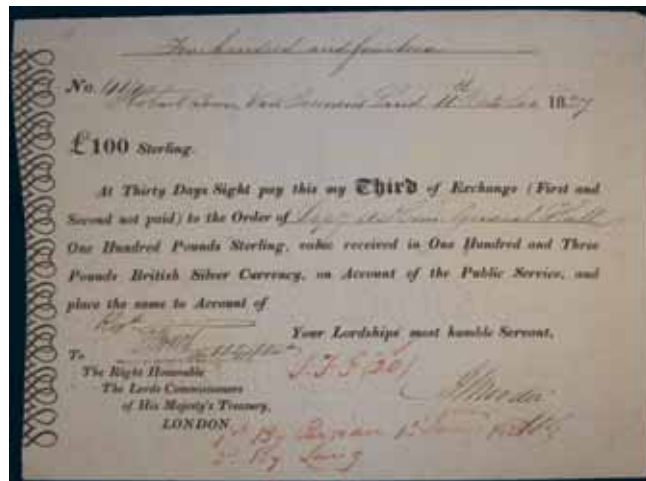 Four hundred and fourteen
No. 414
Hobart Town Van Diemens Land 11th October 1827
£100 Sterling.
At Thirty Days Sight pay this my Third of Exchange (First and
Second not paid) to the Order of General Hull
One Hundred Pounds Sterling, value received in One Hundred and Three
Pounds British Silver Currency, on Account of the Public Service, and
place the same to Account of
Your Lordships' most humble Servant,
To
The Right Honorable
The Lords Commissioners
of His Majesty's Treasury,
LONDON